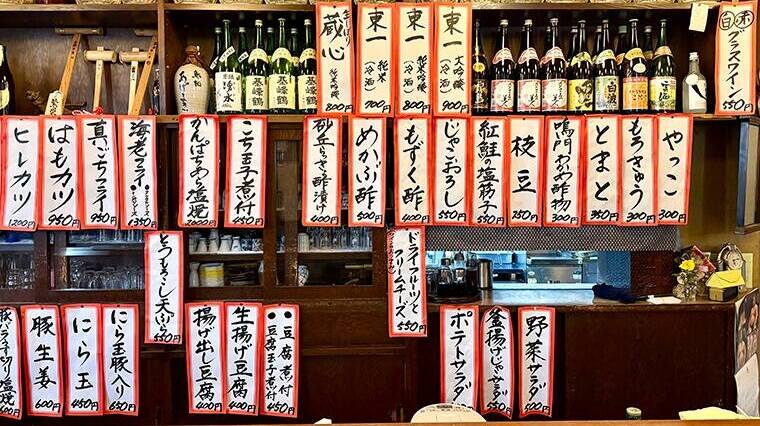 蔵心
純米吟醸
800円
東一
純米
(冷酒)
900円
東一
純米吟醸
(冷酒)
800円
東一
大吟醸
(冷酒)
900円
白 赤
グラスワイン
550円
ヒレカツ
1200円
はもカツ
950円
真こちフライ
950円
海老フライ
かんぱちあら塩焼
こち玉子煮付
砂丘らっきょ酢漬け
400円
めかぶ酢
500円
もずく酢
400円
じゃこおろし
550円
紅鮭の塩筋子
550円
枝豆
250円
鳴門わかめ酢物
350円
とまと
350円
もろきゅう
300円
やっこ
300円
とうもろこし天ぷら
550円
ドライフルーツと
クリームチーズ
550円
豚バラ
豚生姜
600円
にら玉
450円
にら玉豚入り
650円
揚げ出し豆腐
400円
生揚げ豆腐
400円
豆腐煮付
豆腐玉子煮付
450円
ポテトサラダ
釜揚げじゃこサラダ
550円
野菜サラダ
500円